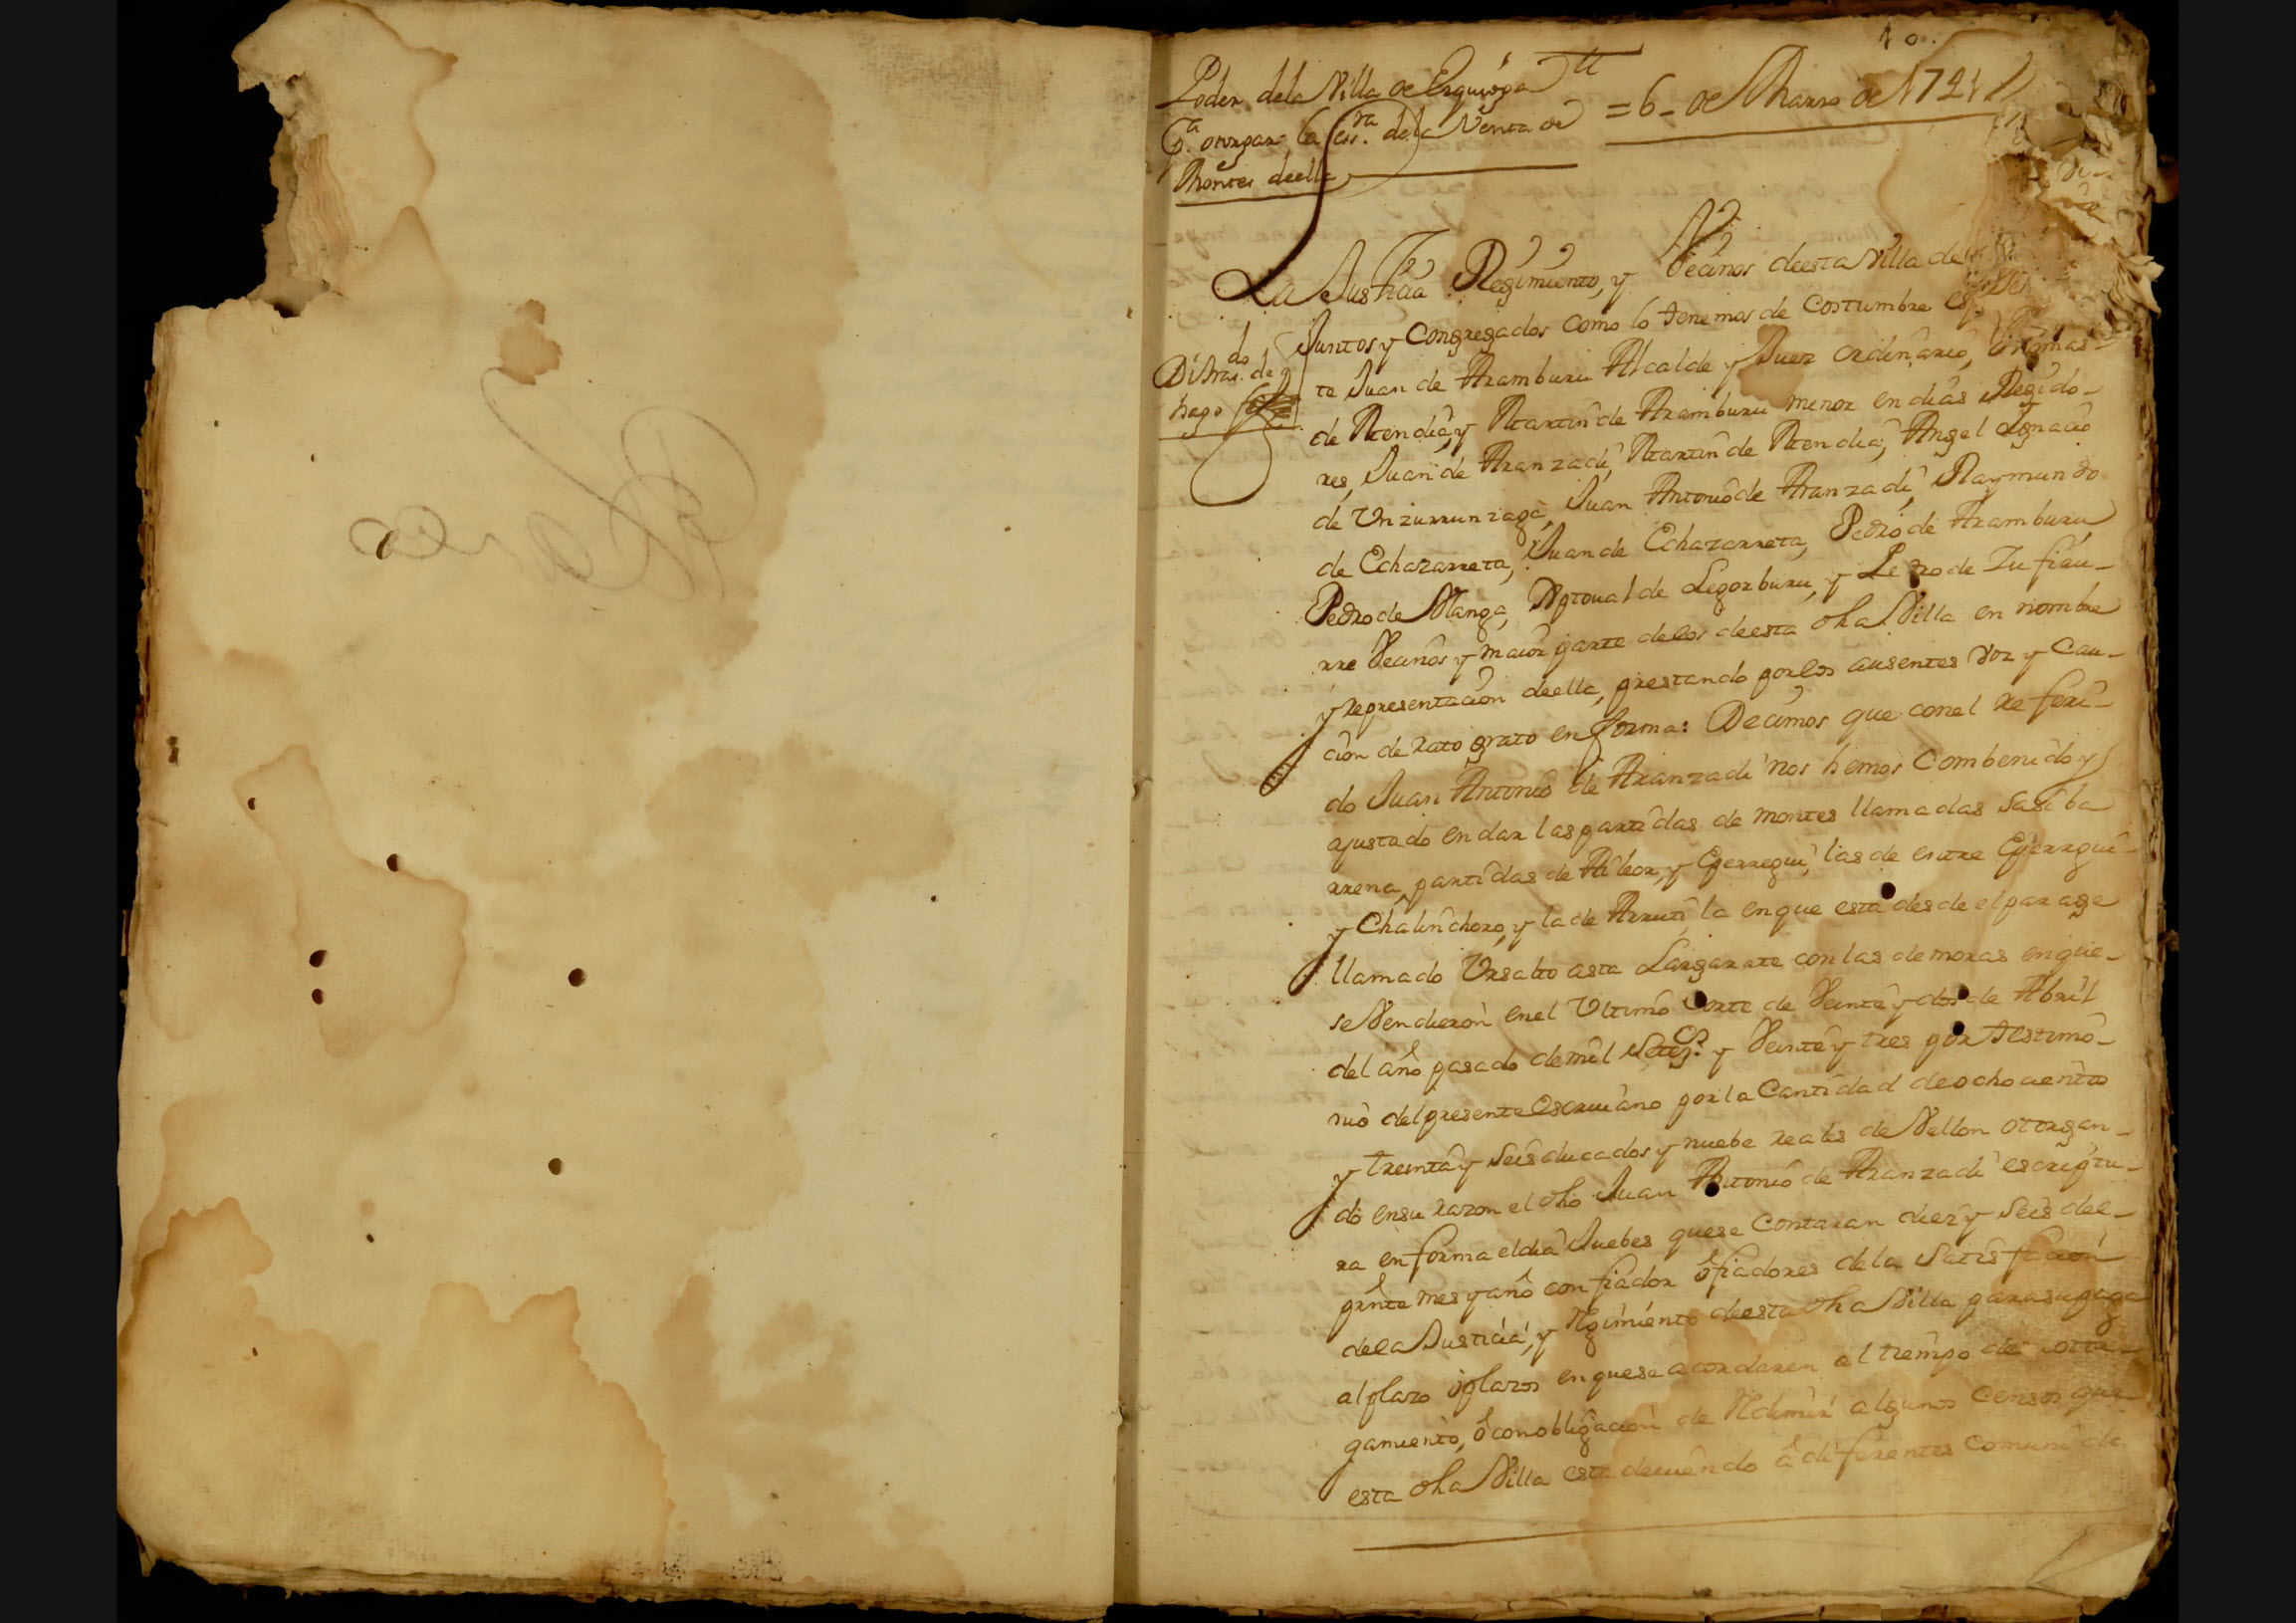 10.
Poder dela Villa de Ezquioga
Pa. otorgar la essra. dela Venta de
Montes deella
= 6 - de Marzo de 1724
La Justicia Regimiento, y Vecinos deesta Villa de
Juntos y Congregados como lo tenemos de Costumbre
te Juan de Aramburu Alcalde y Juez ordinario,
de Mendia, y Martin de Aramburu menor en dias Regido-
res, Juan de Aranzadi, Martin de Mendia, Angel Ignacio
de Unzurrunzaga, Juan Antonio de Aranzadi, Raymundo
de Echazarreta, Juan de Echazarreta, Pedro de Aramburu,
Pedro de Olanga, Xptoual de Legorburu, y Pedro de Zufiau-
rre Vecinos y maior parte delos deesta dha Villa en nombre
y representacion deella, prestando por los ausentes voz y Cau-
cion de rato grato en forma: Decimos que conel referi-
do Juan Antonio de Aranzadi nos hemos Combenido y
ajustado en dar las partidas de montes llamadas Sasiba
rrena, partidas de y Ejerregui, las de entre Ejerregui
y Chalinchoro, y la de Arruti, la enque esta desde el parage
llamado Ursalto asta Largarate con las demoras enque
se Vendieron enel Ultimo Corte de Veinte y dos de Abril
del año pasado de mil Setezs. y Veinte y tres por testimo-
nio del presente escriuano por la Cantidad de ochocientos
y treinta y Seis ducados y nuebe reales de Vellon otorgan-
do ensu razon el dho Juan Antonio de Aranzadi escriptu-
ra en forma el dia Juebes quese Contaran diez y Seis del
prnte mes y año con fiador ô fiadores dela Satisfacion
dela Justicia, y Rgimiento deesta dha Villa para su paga
al plazo ô plazos enquese acordaren al tiempo de otor-
gamiento, ô con obligacion de Redimir algunos Censos que
esta dha Villa esta deuiendo â diferentes Comunida
Di tras. do. de
hago